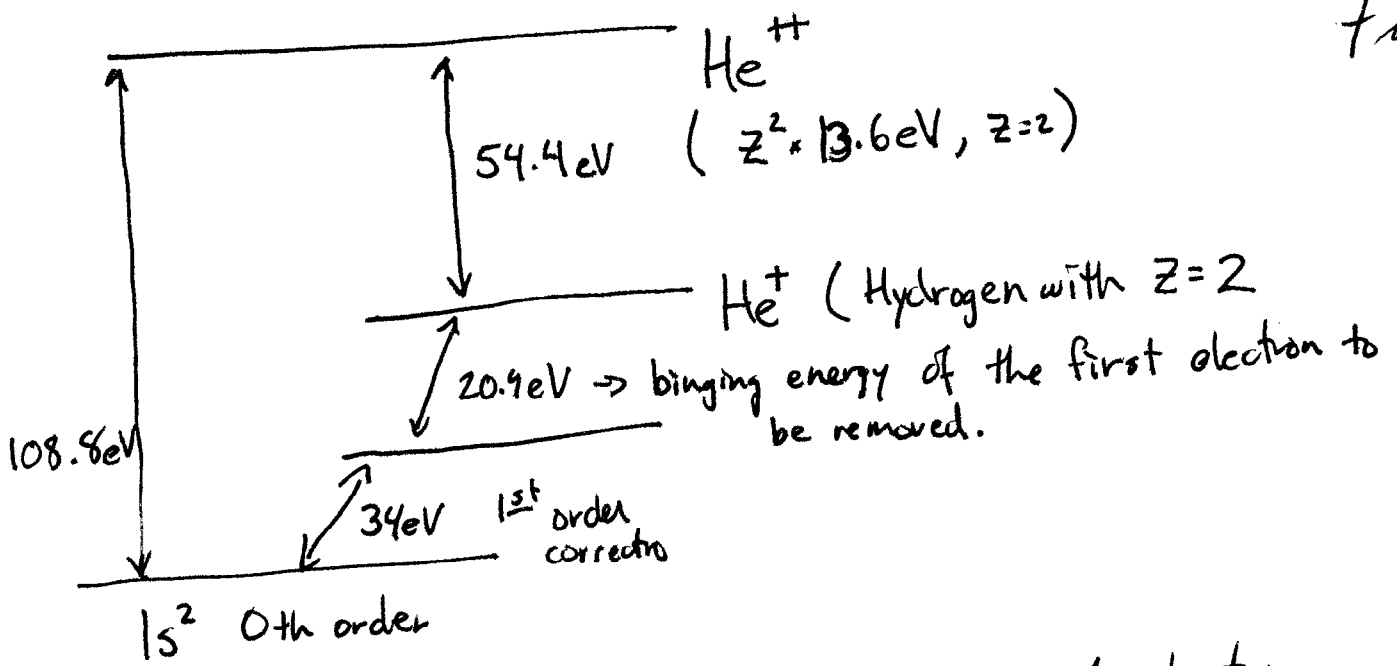 He⁺⁺
54.4eV ( Z²× 13.6eV, Z=2)
He⁺ ( Hydrogen with Z=2
20.4eV → binging energy of the first electron to
be removed.
108.8eV
34eV 1st order
correctio
1s² 0th order